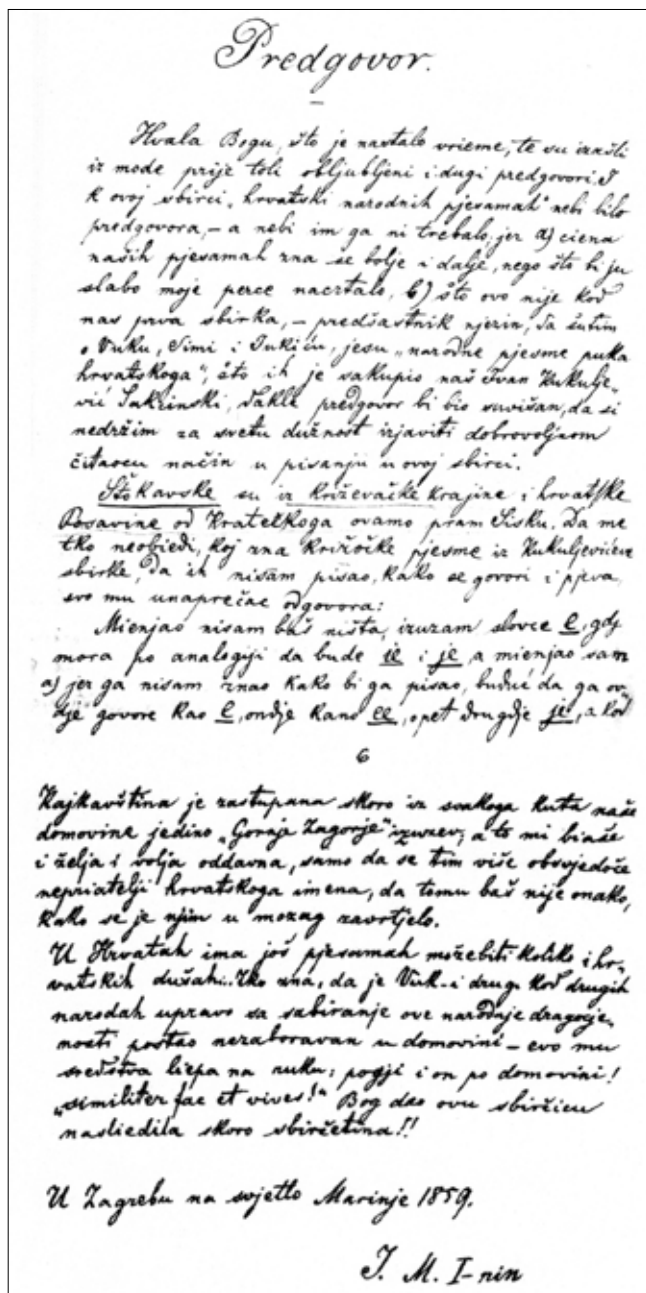 Predgovor.
Hvala Bogu, što je nastalo vrieme, te su izašli
iz mode prije toli obljubljeni i dugi predgovori. I
k ovoj sbirci „hrvatski narodnih pjesamah" nebi bilo
predgovora, – a nebi im ga ni trebalo, jer a) ciena
naših pjesamah zna se bolje i dalje, nego što bi ju
slabo moje perce nacrtalo, b) što ovo nije kod
nas prva sbirka, – predšastnik njezin, da šutim
o Vuku, Simi i Jukiću, jesu „narodne pjesme puka
hrvatskoga", što ih je sakupio naš Ivan Kukulje„
vić Sakcinski, dakle predgovor bi bio suvišan, da si
nedržim za svetu dužnost izjaviti dobrovoljnom
čitaocu način u pisanju u ovoj sbirci.
Štokavske su iz križevačke krajine i hrvatske
Posavine od Kratečkoga ovamo pram Sisku. Da me
tko neobiedi, koj zna križočke pjesme iz Kukuljevićeve
sbirke, da ih nisam pisao, kako se govori i pjeva,
evo mu unaprečac odgovora:
Mienjao nisam baš ništa, izuzam slovce e, gdj
mora po analogiji da bude ie i je, a mienjao sam
a) jer ga nisam znao kako bi ga pisao, buduć da ga ov„
dje govore kao e, ondje kano ee, opet drugdje je, a kod
6
Kajkavština je zastupana skoro iz svakoga kuta naše
domovine jedino „Gornje Zagorje" izuzev; a to mi biaše
i želja i volja oddavna, samo da se tim više obsvjedoče
nepriatelji hrvatskoga imena, da tomu baš nije onako,
kako se je njim u mozag zavrtjelo.
U Hrvatah ima još pjesamah možebiti koliko i hr„
vatskih dušah. Tko zna, da je Vuk i drugi kod drugih
narodah upravo sa sabiranje ove narodnje dragocje„
nosti postao nezaboravan u domovini – evo mu
sredstva liepa na ruku; pogji i on po domovini!
„similiter fac et vives!" Bog dao ovu sbirčicu
nasliedila skoro sbirčetina!!
U Zagrebu na svjetlo Marinje 1859.
I. M. I–nin